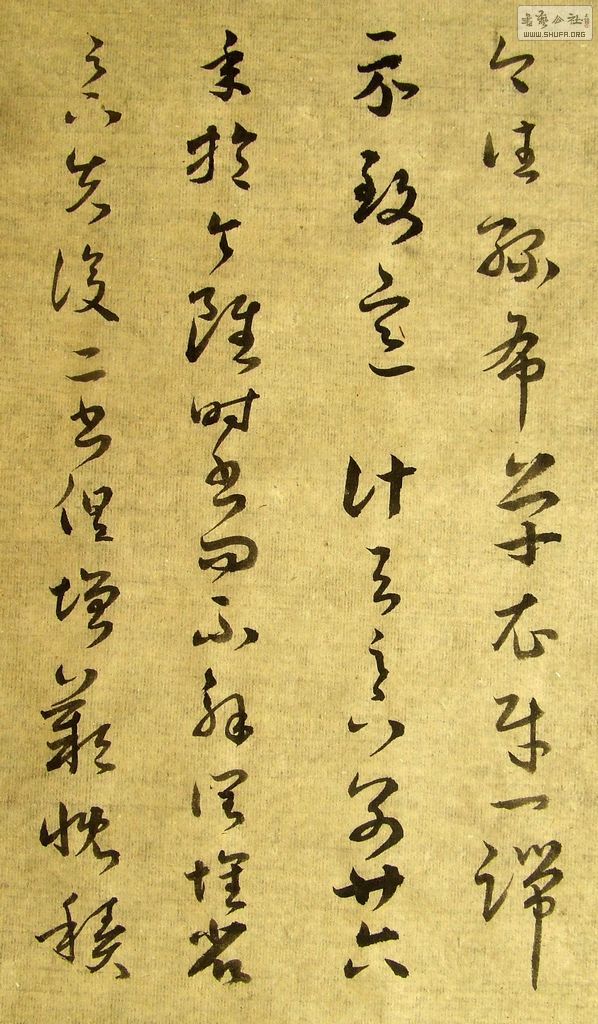 今往絲布單衣財一端
示致意 計與足下別廿六
年於今雖時書問不解闊懷省
足下先後二書但增歎慨積
書藝公社
WWW.SHUFA.ORG